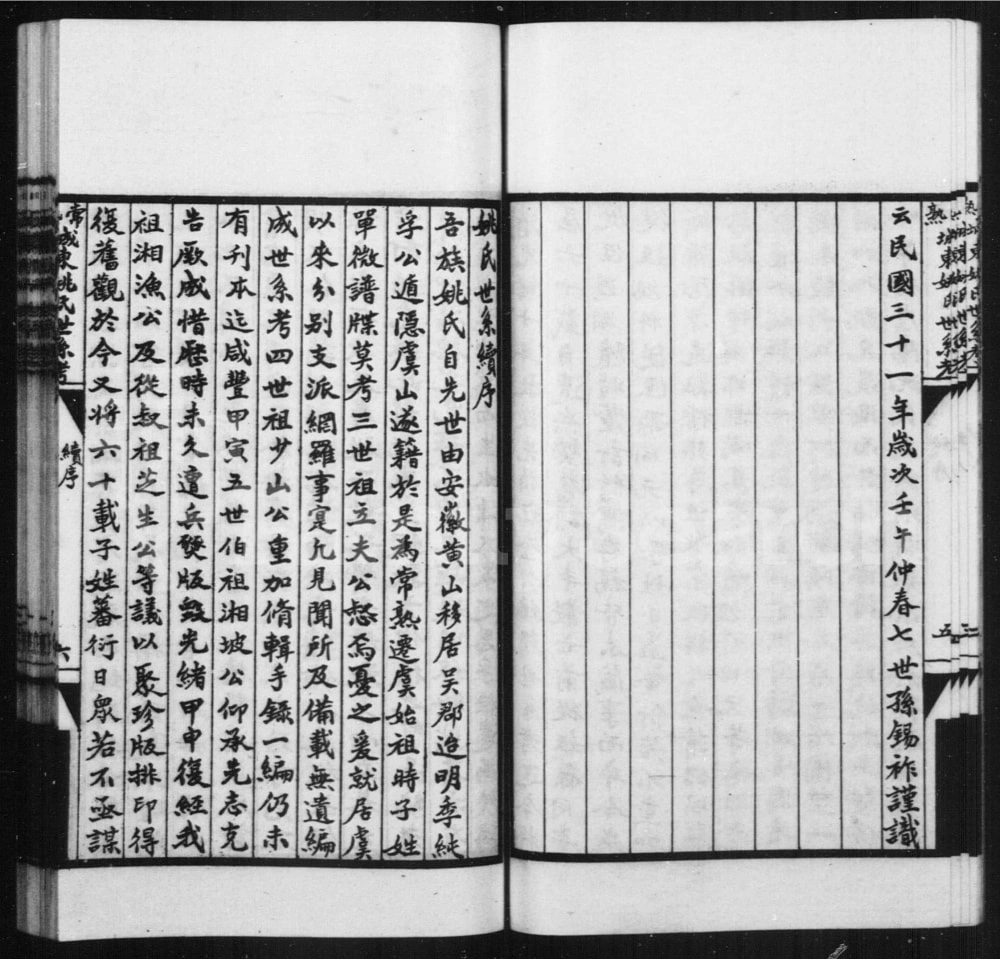 云民國三十一年歲次壬午仲春七世孫錫祚謹識
姚氏世系續序
吾族姚氏自先世由安徽黃山移居吳郡迨明季純
孚公遁隱虞山遂籍於是為常熟遷虞始祖時子姓
單微譜牒莫考三世祖立夫公怒焉憂之爰就居虞
以來分别支派網羅事寔凢見聞所及備載無遺編
成世系考四世祖少山公重加脩輯手錄一編仍未
有刊本迄咸豐甲寅五世伯祖湘坡公仰承先志克
告厥成惜歷時未久遭兵燹版燬光緒甲申復經我
祖湘漁公及從叔祖芝生公等議以聚珍版排印得
復舊觀於今又將六十載子姓蕃衍日眾若不亟謀
常 城東姚氏世系考
續序
六